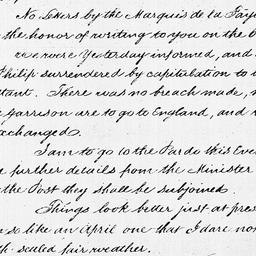 No Letters by the Marquis de la Fay
the honor of writing to you on the
were Yesterday informed, and
Philip surrendered by capitulation to
tant. There was no breach made,
Garrison are to go to England, and
exchanged.
I am to go to the Pardo this Eve
further details from the Minister
the Post they shall be subjoined.
Things look better just at pres
so like an April one that I dare no
settled fair weather.